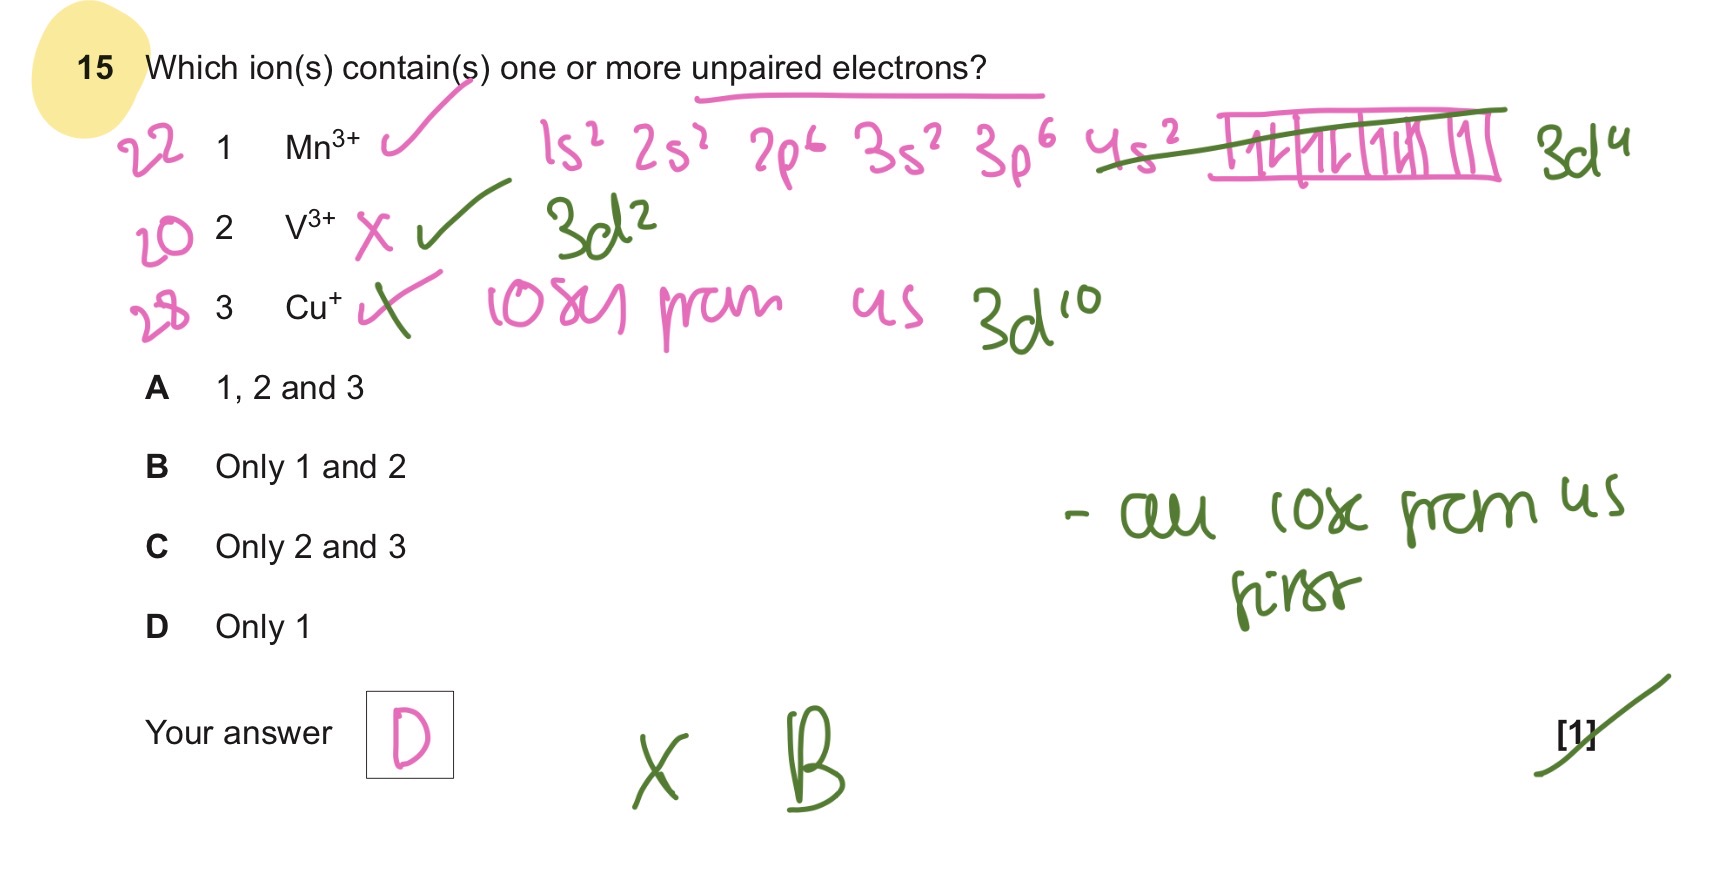 15 Which ion(s) contain(s) one or more unpaired electrons?
22 1 Mn³⁺ ✓ 1s² 2s² 2p⁶ 3s² 3p⁶ 4s² 3d⁴
20 2 V³⁺ X ✓ 3d²
28 3 Cu⁺ ✓ X from 4s 3d¹⁰
A 1, 2 and 3
B Only 1 and 2
C Only 2 and 3
- all lose from 4s
first
D Only 1
Your answer D X B [1]